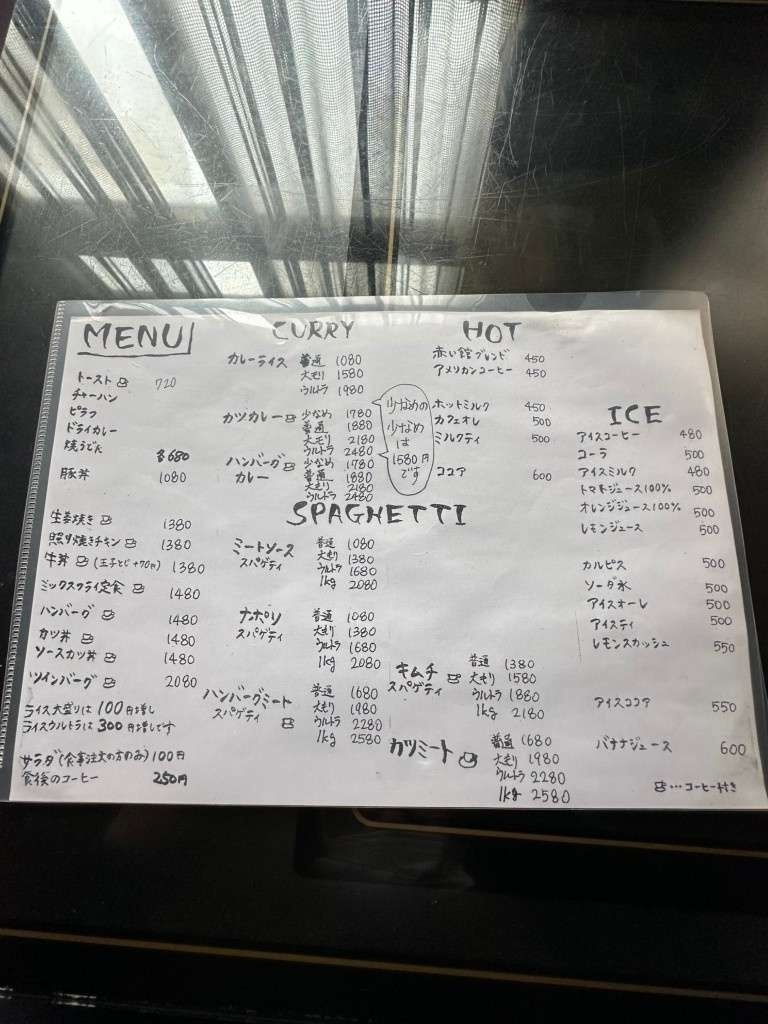 MENU
トースト 720
チャーハン
ピラフ
ドライカレー
焼うどん
各680
豚丼 1080
生姜焼き 1380
照り焼きチキン 1380
牛丼 (玉子とじ+70円) 1380
ミックスフライ定食 1480
ハンバーグ 1480
カツ丼 1480
ソースカツ丼 1480
ツインバーグ 2080
ライス大盛りは100円増し
ライスウルトラは300円増しです
サラダ(食事注文の方のみ)100円
食後のコーヒー 250円
CURRY
カレーライス 普通 1080
大モリ 1580
ウルトラ 1980
カツカレー 少なめ 1780
普通 1880
大モリ 2180
ウルトラ 2480
ハンバーグ 少なめ 1780
カレー 普通 1880
大モリ 2180
ウルトラ 2480
少なめの
少なめ
は
1580円
です
SPAGHETTI
ミートソース 普通 1080
スパゲティ 大モリ 1380
ウルトラ 1680
1kg 2080
ナポリ 普通 1080
スパゲティ 大モリ 1380
ウルトラ 1680
1kg 2080
ハンバーグミート 普通 1680
スパゲティ 大モリ 1980
ウルトラ 2280
1kg 2580
キムチ 普通 1380
スパゲティ 大モリ 1580
ウルトラ 1880
1kg 2180
カツミート 普通 1680
大モリ 1980
ウルトラ 2280
1kg 2580
HOT
赤い館ブレンド 450
アメリカンコーヒー 450
ホットミルク 450
カフェオレ 500
ミルクティ 500
ココア 600
ICE
アイスコーヒー 480
コーラ 500
アイスミルク 480
トマトジュース100% 500
オレンジジュース100% 500
レモンジュース 500
カルピス 500
ソーダ水 500
アイスオーレ 500
アイスティ 500
レモンスカッシュ 550
アイスココア 550
バナナジュース 600
…コーヒー付き